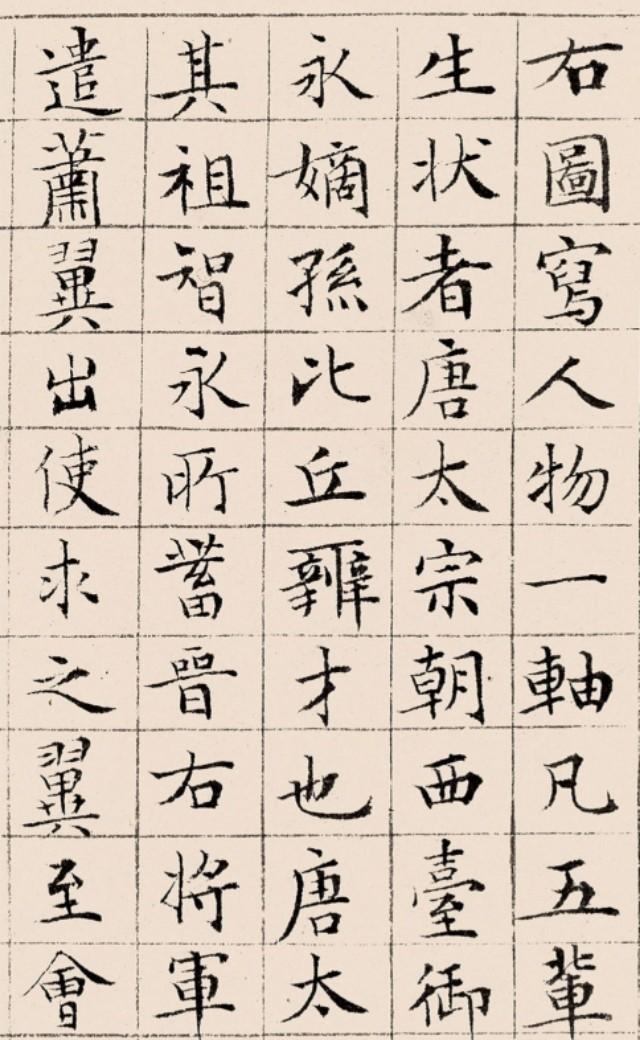 右圖寫人物一軸凡五輩
生状者唐太宗朝西臺御
永嫡孫比丘辩才也唐太
其祖智永所蓄晉右将軍
遣蕭翼出使求之翼至會